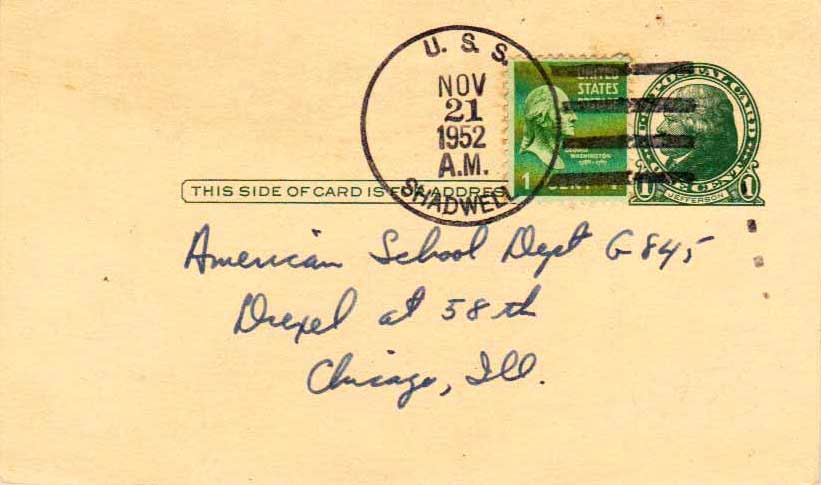 U. S. S.
NOV
21
1952
A.M.
SHADWELL
UNITED
STATES
GEORGE
WASHINGTON
1 CENT 1
U.S. POSTAL CARD
1 ONE CENT 1
JEFFERSON
THIS SIDE OF CARD IS FOR ADDRESS
American School Dept G 845
Drexel at 58 th
Chicago, Ill.